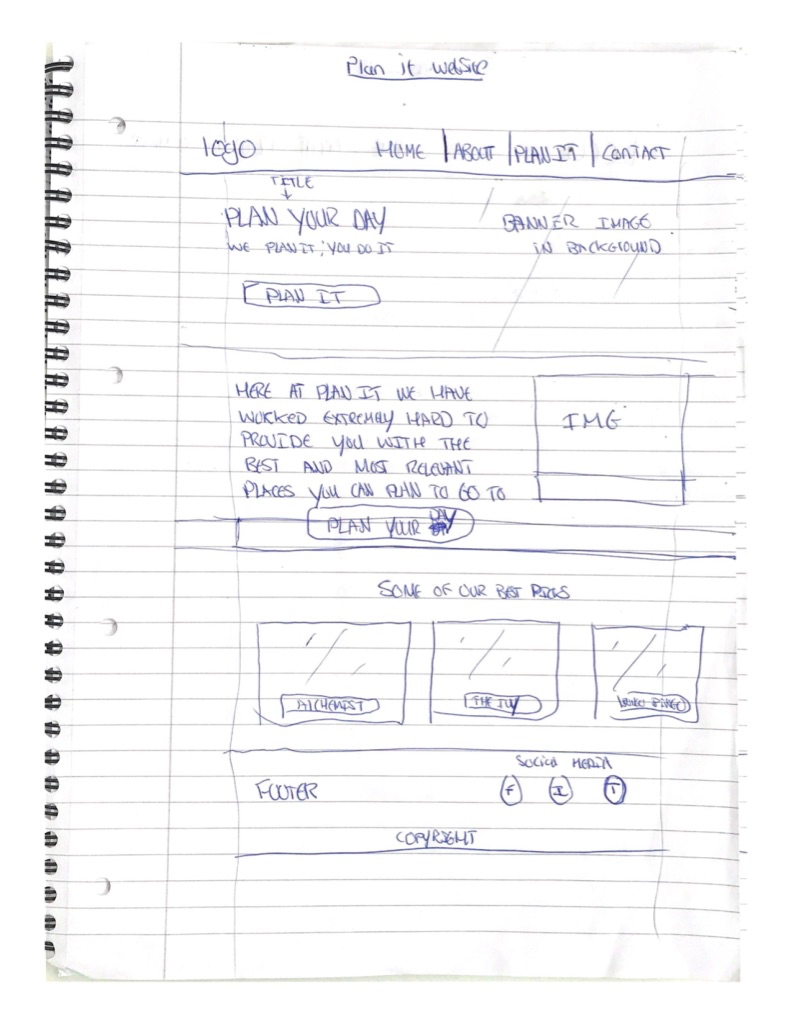 Plan it website
logo HOME | ABOUT | PLAN IT | CONTACT
TITLE
PLAN YOUR DAY
WE PLAN IT, YOU DO IT
BANNER IMAGE
IN BACKGROUND
PLAN IT
HERE AT PLAN IT WE HAVE
WORKED EXTREMLY HARD TO
PROVIDE YOU WITH THE
BEST AND MOST RELEVANT
PLACES YOU CAN PLAN TO GO TO
IMG
PLAN YOUR DAY
SOME OF OUR BEST PICKS
ALCHEMIST
THE IVY
Social MEDIA
FOOTER
F I T
COPYRIGHT